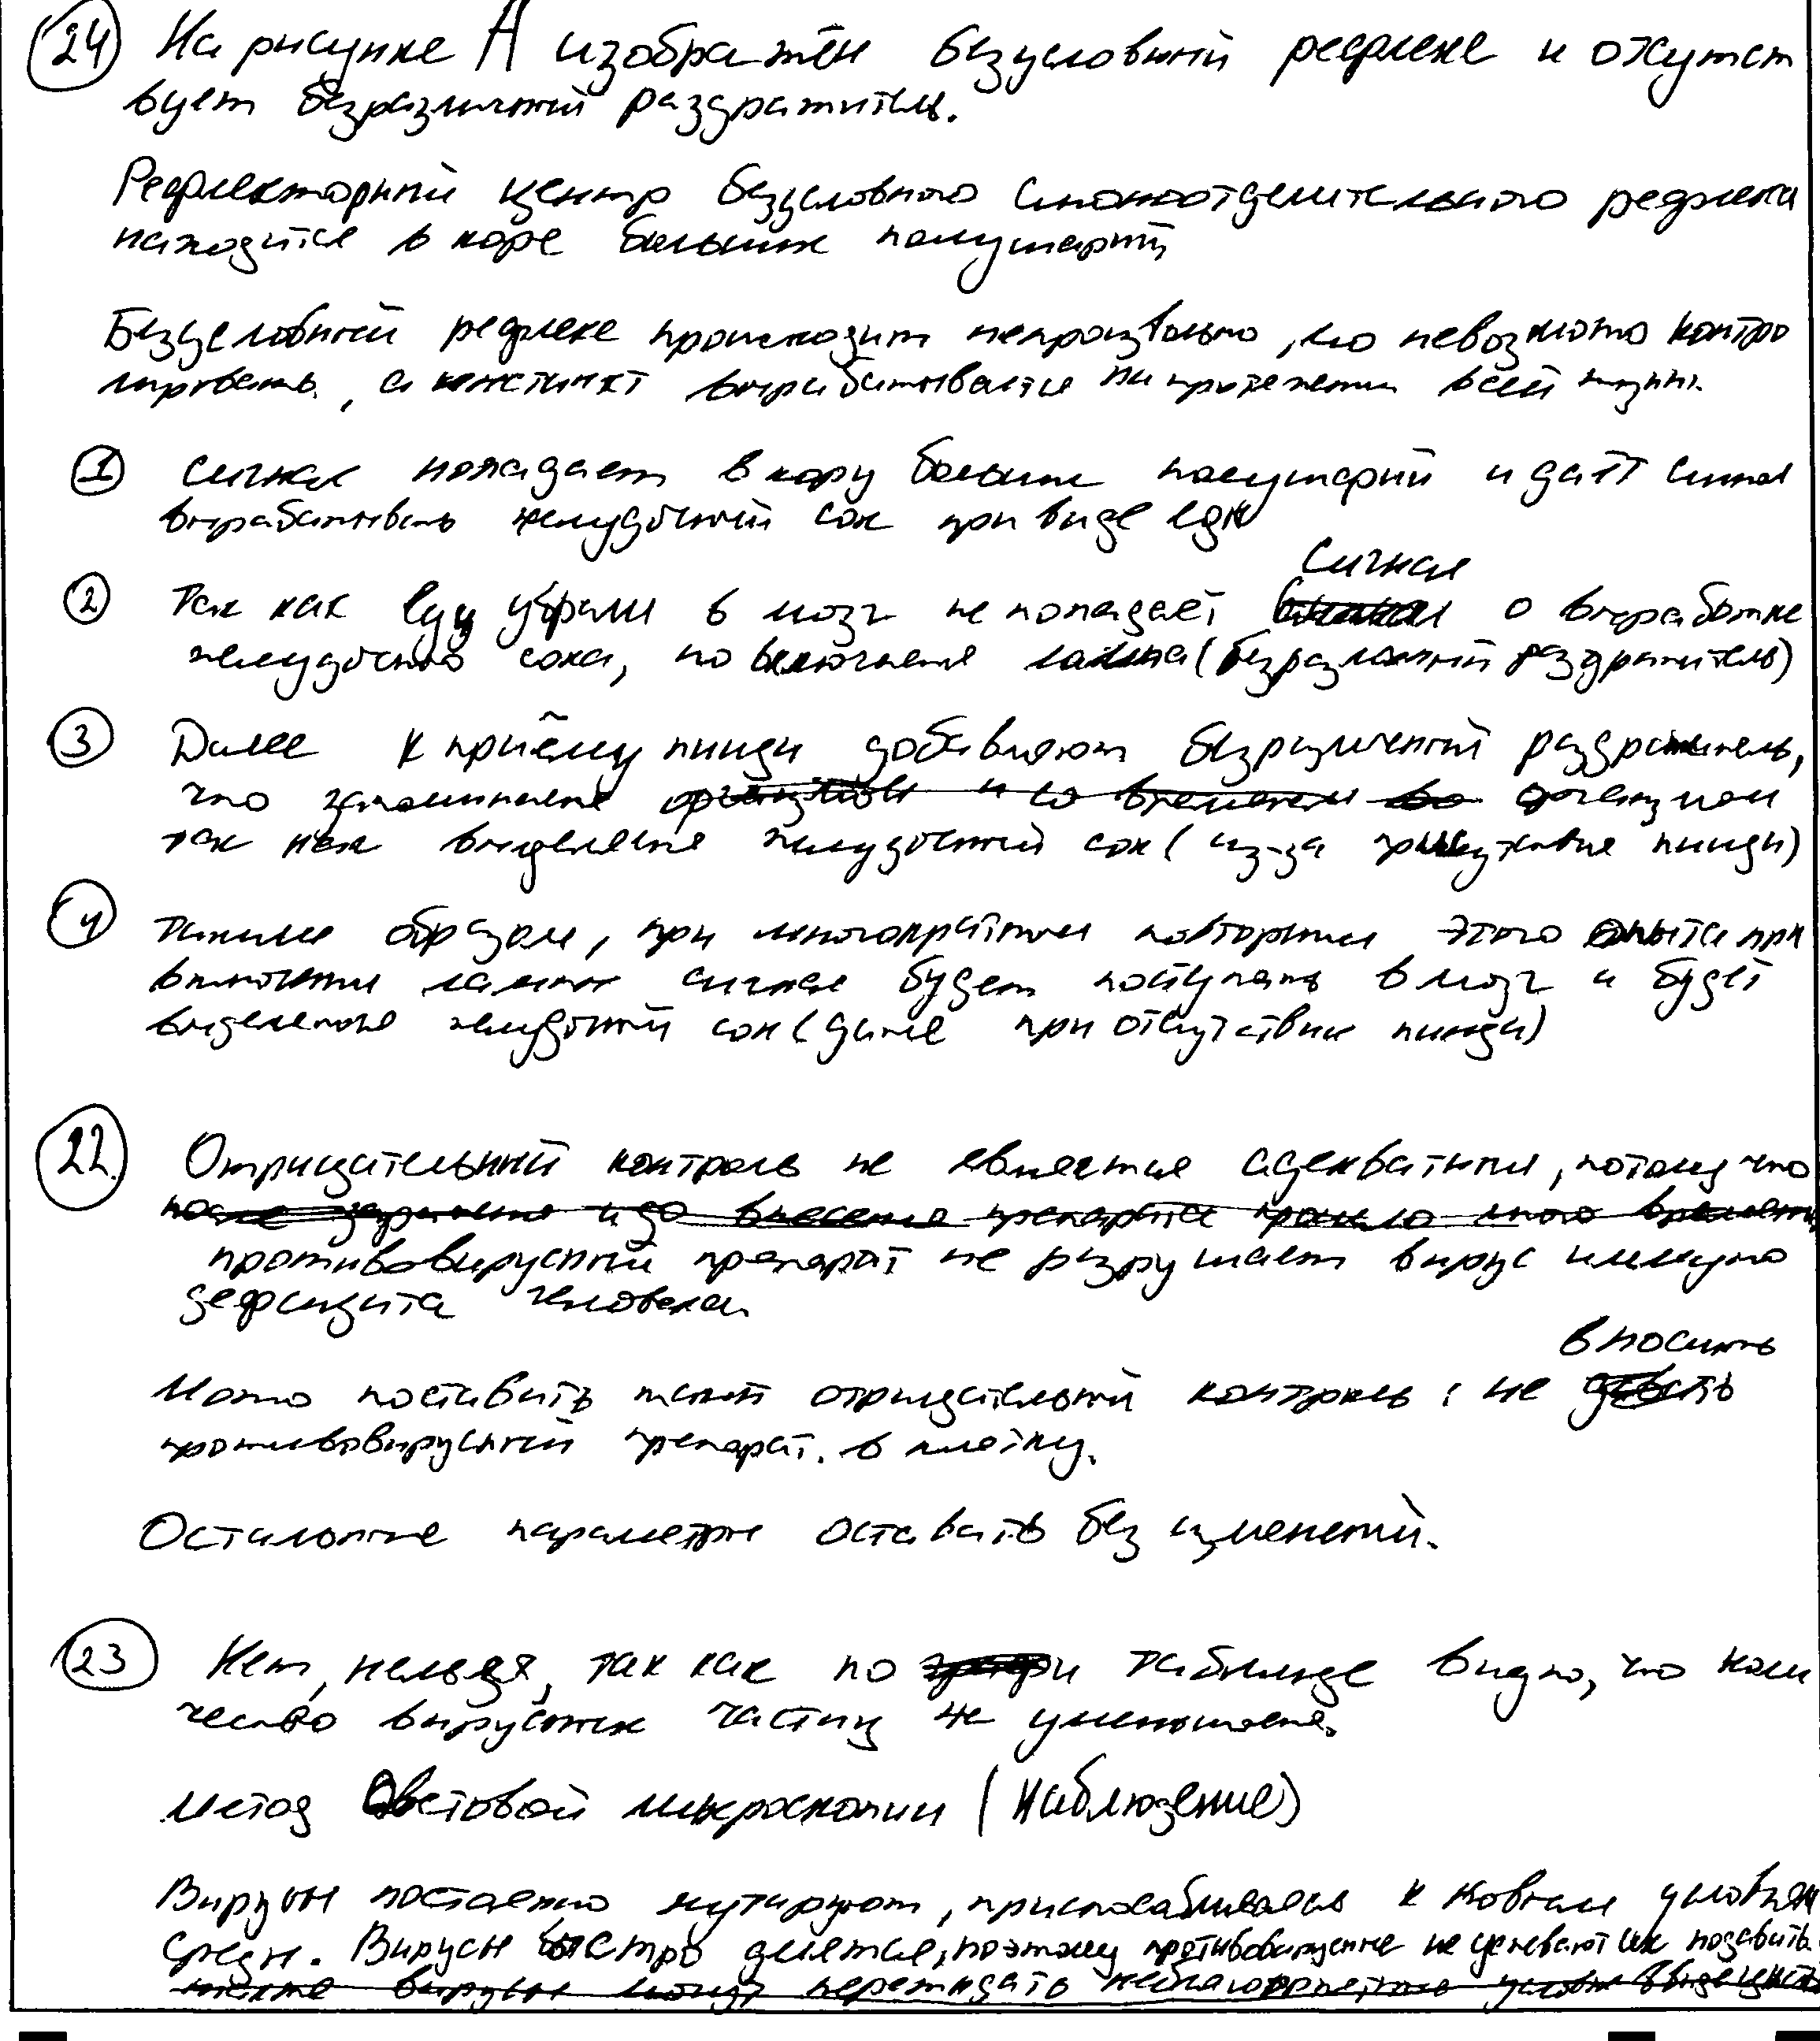 24 На рисунке А изображён безусловный рефлекс и отсутст
вует безразличный раздражитель.
Рефлекторный центр безусловного слюноотделительного рефлекса
находится в коре больших полушарий
Безусловный рефлекс происходит непроизвольно, его невозможно контро
лировать, а инстинкт вырабатывается на протяжении всей жизни.
1 Сигнал попадает в кору больших полушарий и даёт сигнал
вырабатывать желудочный сок при виде еды
2 Так как еду убрали в мозг не попадает сигнал о выработке
желудочного сока, но включение лампы (безразличный раздражитель)
3 Далее к приёму пищи добавляют безразличный раздражитель,
что запоминание организмом
так как выделение желудочный сок (из-за присутствие пищи)
4 Таким образом, при многократном повторении этого опыта при
включении лампы сигнал будет поступать в мозг и будет
выделение желудочный сок (даже при отсутствии пищи)
22. Отрицательный контроль не является адекватным, потому что
противовирусный препарат не разрушает вирус иммуно
дефицита человека.
Можно поставить такой отрицательный контроль: не вносить
противовирусный препарат. в клетку.
Остальные параметры оставить без изменений.
23 Нет, нельзя, так как по таблице видно, что коли
чество вирусных частиц не уменьшение.
метод световой микроскопии (наблюдение)
Вирусы постоянно мутируют, приспосабливаясь к новым условиям
среды. Вирусы быстро делятся, поэтому противовирусные не успевают их подавить